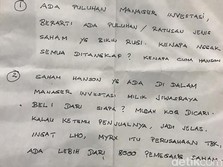 ① ADA PULUHAN MANAGER INVESTASI,
BERARTI ADA PULUHAN / RATUSAN JENIS
SAHAM YG BIKIN RUGI. KENAPA NGGAK
SEMUA DITANGKAP? KENAPA CUMA HANSON
② SAHAM HANSON YG ADA DI DALAM
MANAGER INVESTASI MILIK JIWASRAYA
BELI DARI SIAPA? MIDAK KOQ DICARI.
KALAU KETEMU PENJUALNYA, JADI JELAS.
INGAT LHO, MYRX ITU PERUSAHAAN TBK.
ADA LEBIH DARI 8000 PEMEGANG SAHAM